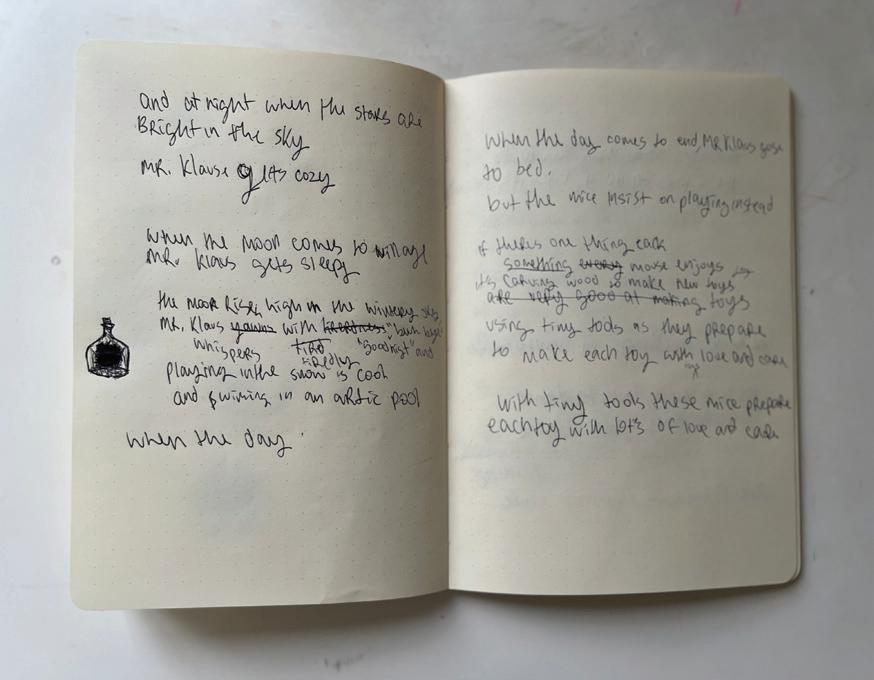 and at night when the stars are
Bright in the sky
MR. Klause gets cozy
when the moon comes to
MR. Klaus gets sleepy
the moon Rises high in the wintery sky,
MR. Klaus yawns with
whispers tird "goodnight" and
tiredly
playing in the snow is cool
and swiming in an artic pool
when the day
when the day comes to end, MR Klaus gose
to bed.
but the mice insist on playing instead
if theris one thing each
something every mouse enjoys
its carving wood to make new toys
are very good at making toys
using tiny tools as they prepare
to make each toy with love and care
with tiny tools these mice prepare
each toy with lots of love and care